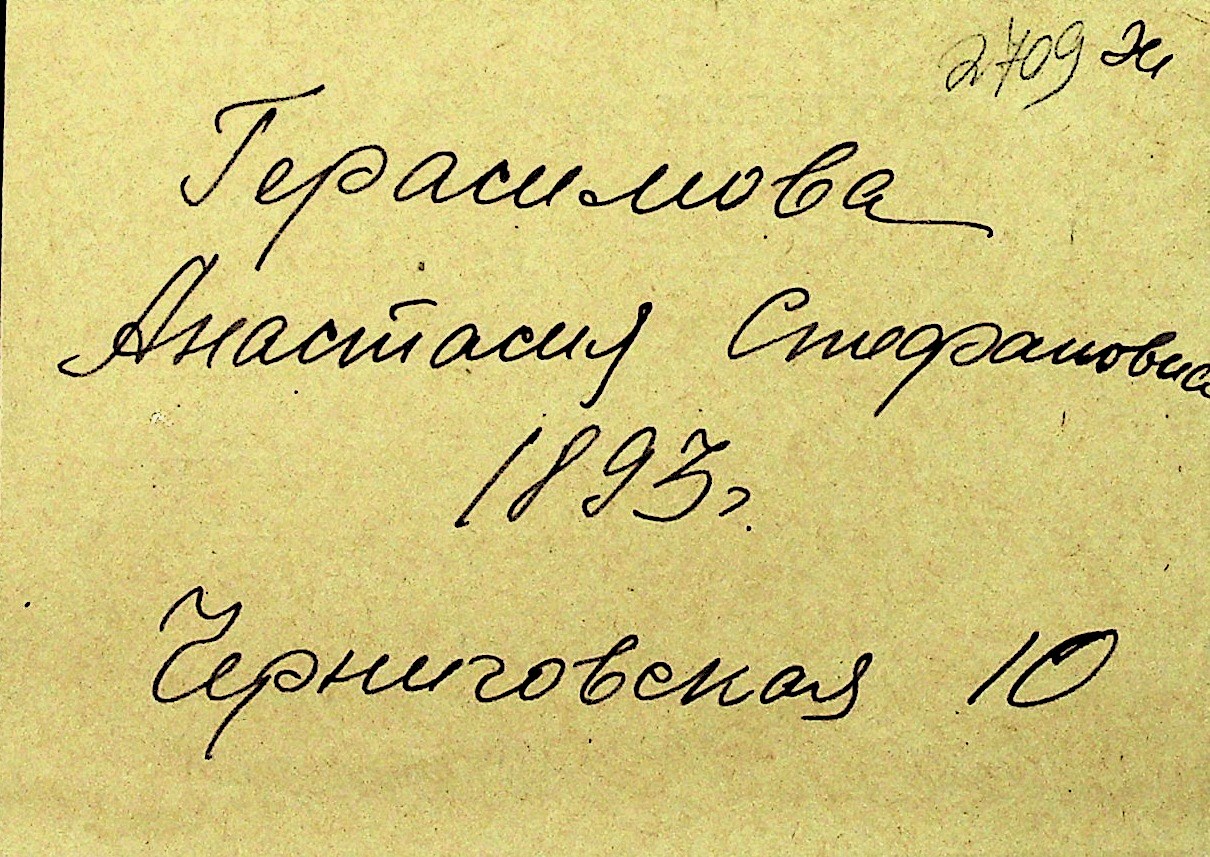 2709 ж
Герасимова
Анастасия Стефановна
1893 г.
Черниговская 10